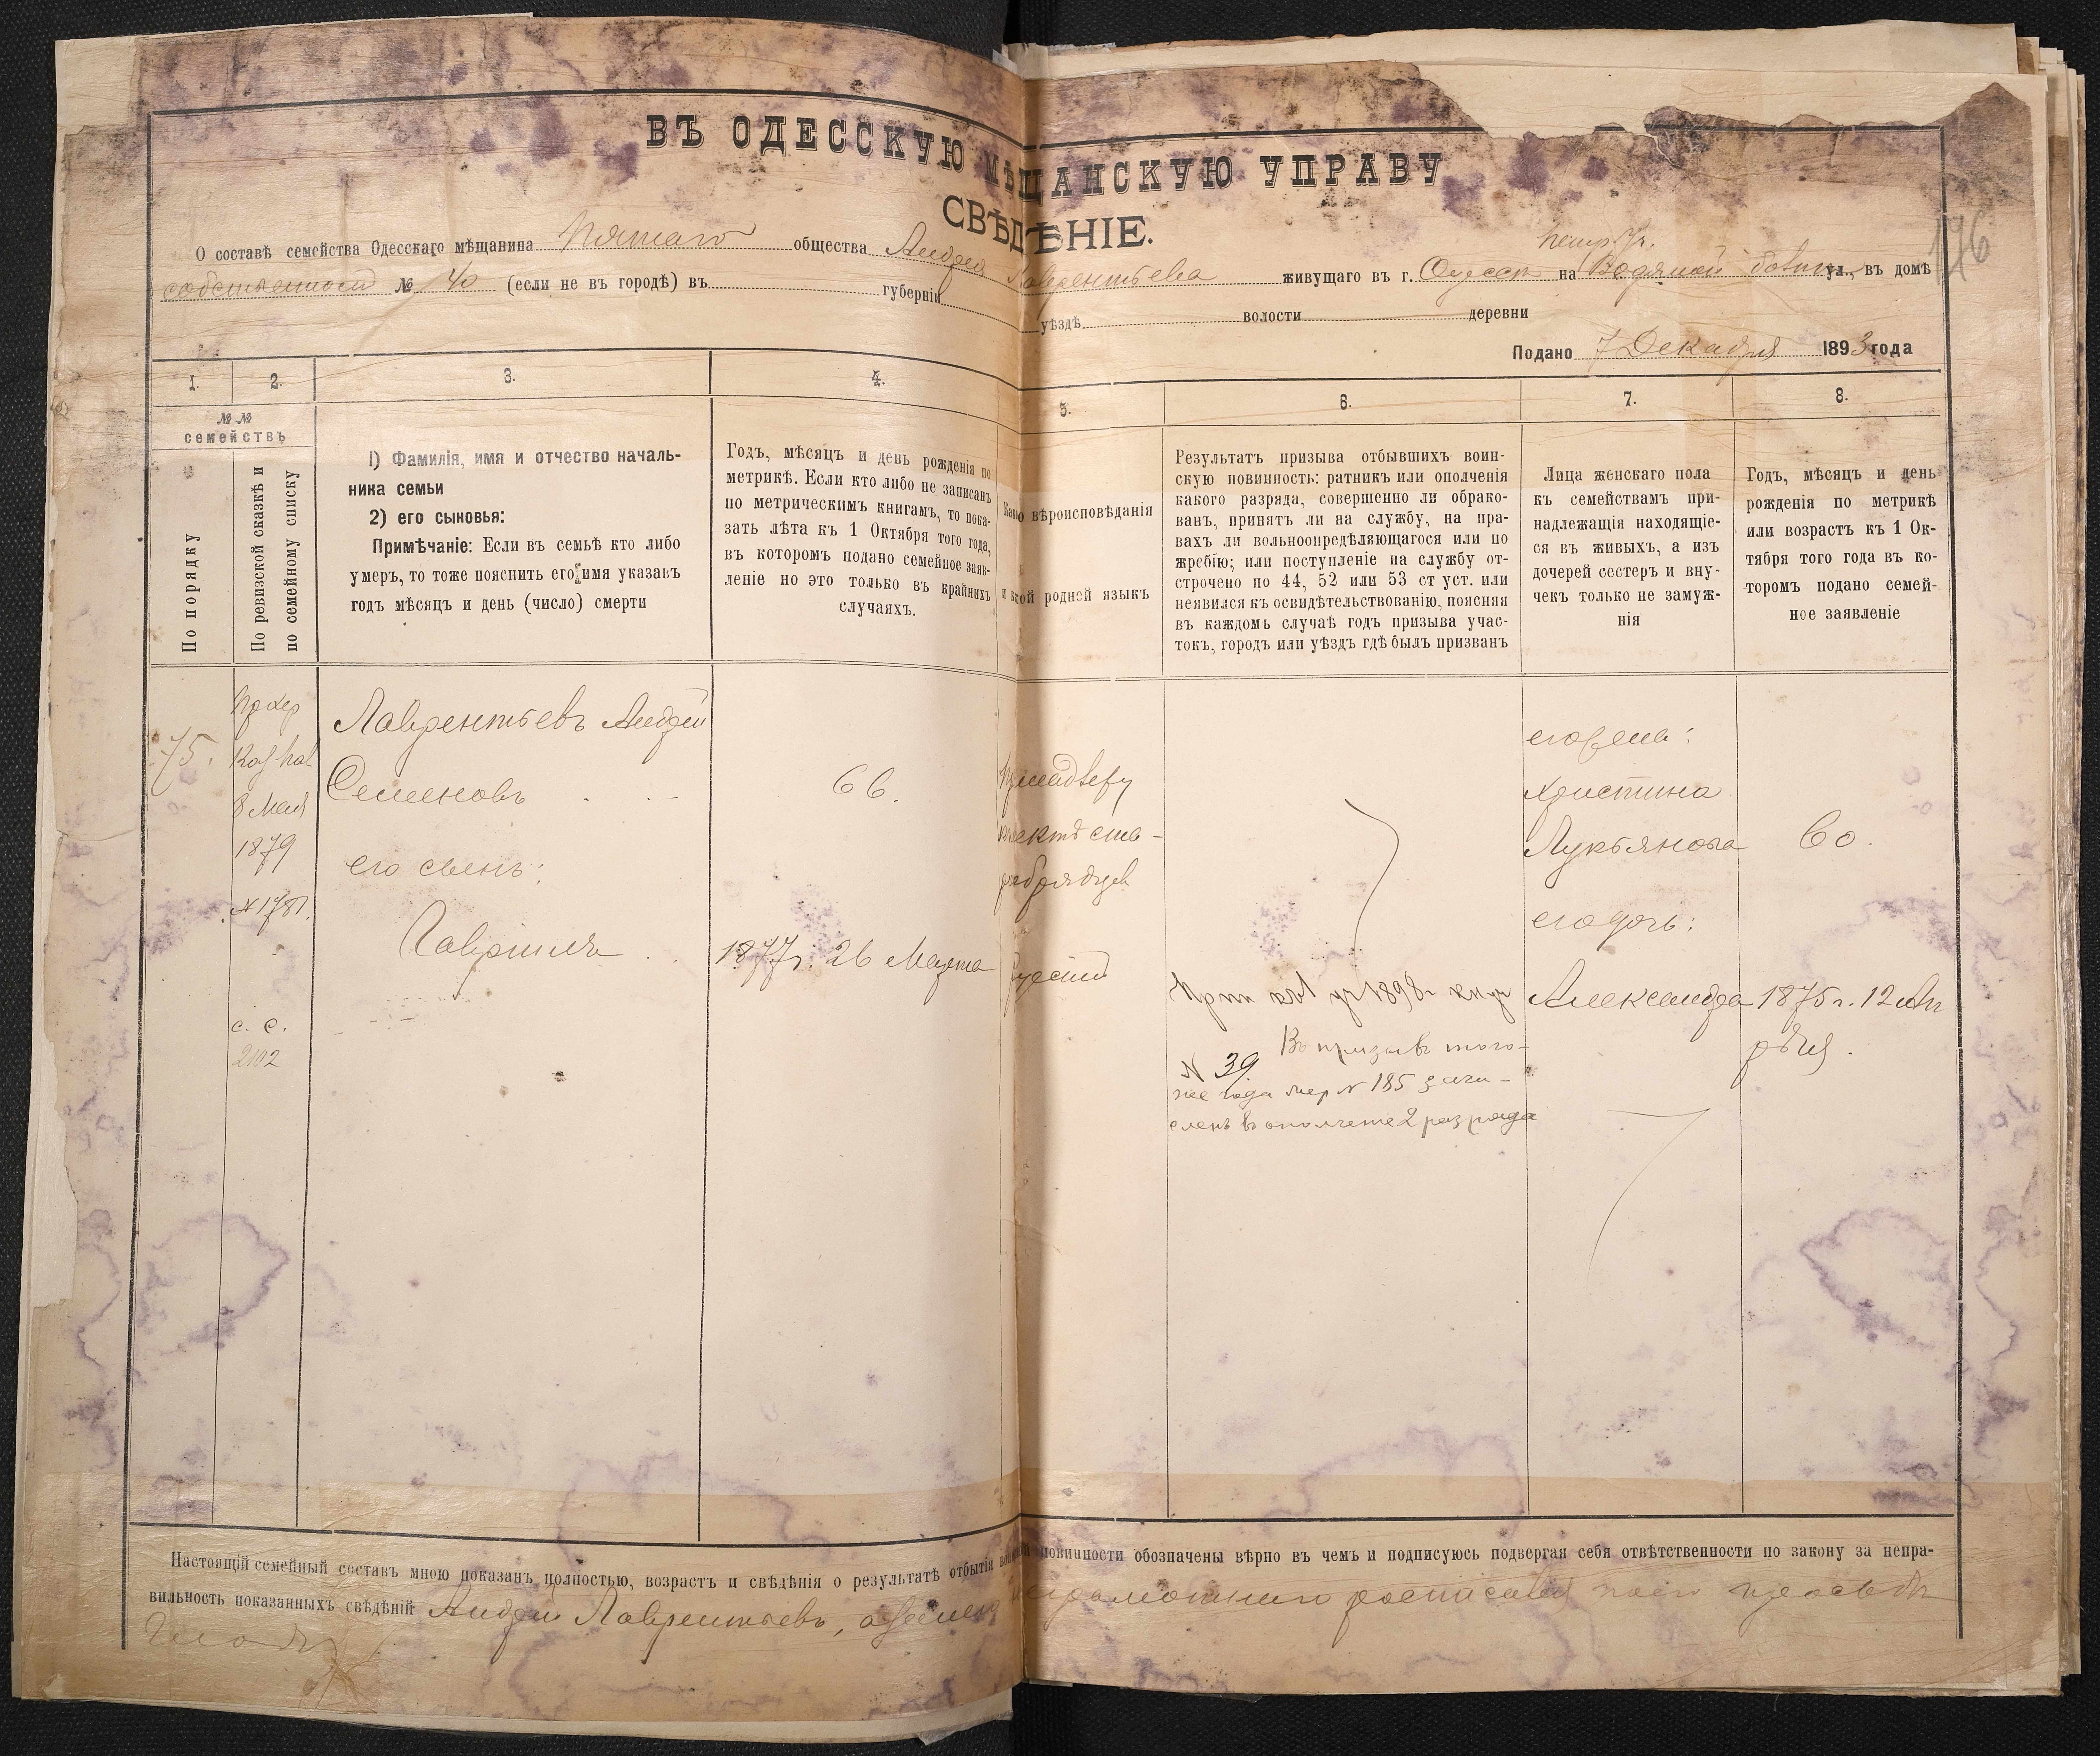 ВЪ ОДЕССКУЮ МѢЩАНСКУЮ УПРАВУ
СВѢДѢНІЕ.
176
О составѣ семейства Одесскаго мѣщанина Пятаго общества Андрея Лаврентьева живущаго въ г. Одессѣ на Водяной ул., въ домѣ
собственномъ № 40 (если не въ городѣ) въ губерніи уѣздѣ волости деревни
Подано 7 Декабря 1893 года
1. 2. 3. 4. 5. 6. 7. 8.
№ №
семействъ
По порядку
По ревизской сказкѣ и
по семейному списку
1) Фамилія, имя и отчество началь-
ника семьи
2) его сыновья:
Примѣчаніе: Если въ семьѣ кто либо
умеръ, то тоже пояснить его имя указавъ
годъ мѣсяцъ и день (число) смерти
Годъ, мѣсяцъ и день рожденія по
метрикѣ. Если кто либо не записанъ
по метрическимъ книгамъ, то пока-
зать лѣта къ 1 Октября того года,
въ которомъ подано семейное заяв-
леніе но это только въ крайнихъ
случаяхъ.
Какого вѣроисповѣданія
и какой родной языкъ
Результатъ призыва отбывшихъ воин-
скую повинность: ратникъ или ополченія
какого разряда, совершенно ли обрако-
ванъ, принятъ ли на службу, на пра-
вахъ ли вольноопредѣляющагося или по
жребію; или поступленіе на службу от-
строчено по 44, 52 или 53 ст уст. или
неявился къ освидѣтельствованію, поясняя
въ каждомъ случаѣ годъ призыва учас-
токъ, городъ или уѣздъ гдѣ былъ призванъ
Лица женскаго пола
къ семействамъ при-
надлежащія находящіе-
ся въ живыхъ, а изъ
дочерей сестеръ и вну-
чекъ только не замуж-
нія
Годъ, мѣсяцъ и день
рожденія по метрикѣ
или возрастъ къ 1 Ок-
тября того года въ ко-
торомъ подано семей-
ное заявленіе
75.
8 Мая
1879
№ 1781.
с. с.
2102
Лаврентьевъ Андрей
Семеновъ
его сынъ:
Гавріилъ
66.
1877 г. 26 Марта
Русскій
1898 г.
№ 39
Въ призывъ того-
же года жер № 185 зачи-
сленъ въ ополчение 2 разряда
его жена:
Христина
Лукьянова
его дочь:
Александра
60.
1875 г. 12 Ап
рѣля.
Настоящій семейный составъ мною показанъ цолностью, возрастъ и свѣдѣнія о результатѣ отбытія воинской повинности обозначены вѣрно въ чемъ и подписуюсь подвергая себя отвѣтственности по закону за непра-
вильность показанныхъ свѣдѣній Андрей Лаврентьевъ, а за него неграмотнаго росписался по его просьбѣ